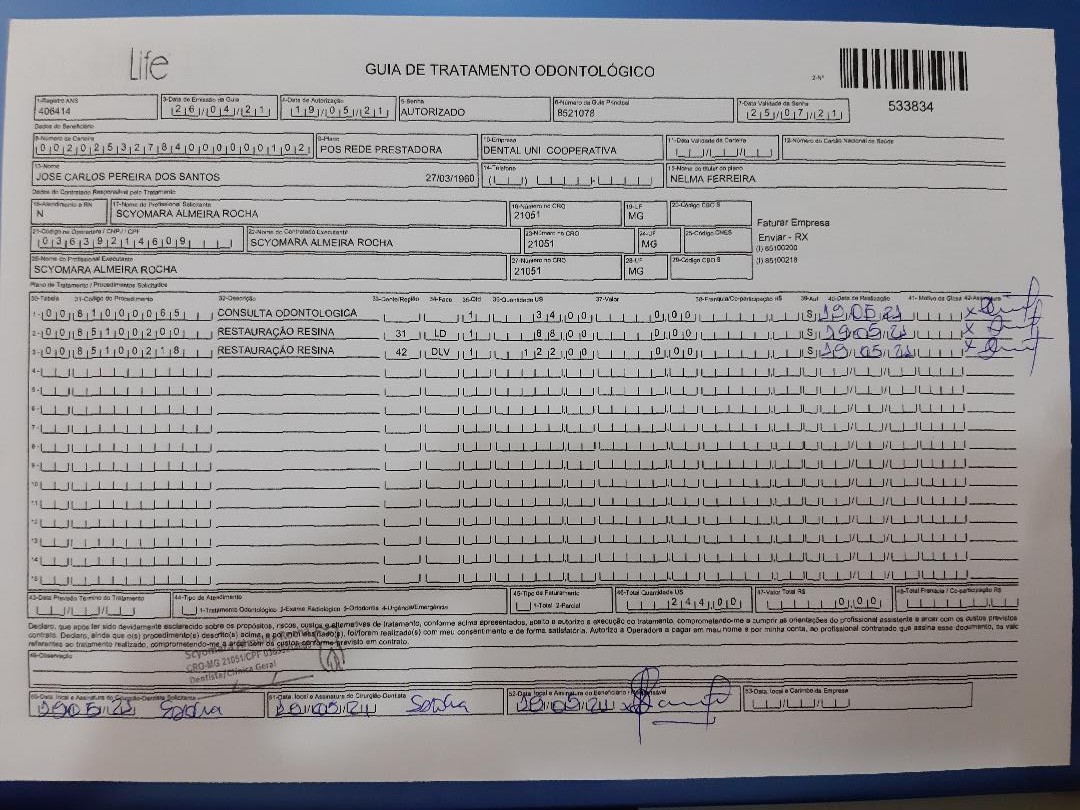 Life
GUIA DE TRATAMENTO ODONTOLÓGICO
2-Nº
533834
1-Registro ANS 3-Data de Emissão da Guia 4-Data de Autorização 5-Senha 6-Número da Guia Principal 7-Data Validade da Senha
406414 26/04/21 19/05/21 AUTORIZADO 8521078 25/07/21
Dados do Beneficiário
8-Número da Carteira 9-Plano 10-Empresa 11-Data Validade da Carteira 12-Número do Cartão Nacional de Saúde
00202532784000000102 POS REDE PRESTADORA DENTAL UNI COOPERATIVA
13-Nome 14-Telefone 15-Nome do titular do plano
JOSE CARLOS PEREIRA DOS SANTOS 27/03/1960 NELMA FERREIRA
Dados do Contratado Responsável pelo Tratamento
16-Atendimento a RN 17-Nome do Profissional Solicitante 18-Número no CRO 19-UF 20-Código CBO S
N SCYOMARA ALMEIRA ROCHA 21051 MG
Faturar Empresa
21-Código na Operadora / CNPJ / CPF 22-Nome do Contratado Executante 23-Número no CRO 24-UF 25-Código CNES
03639214609 SCYOMARA ALMEIRA ROCHA 21051 MG
Enviar - RX
(I) 85100200
(I) 85100218
26-Nome do Profissional Executante 27-Número no CRO 28-UF 29-Código CBO S
SCYOMARA ALMEIRA ROCHA 21051 MG
Plano de Tratamento / Procedimentos Solicitados
30-Tabela 31-Código do Procedimento 32-Descrição 33-Dente/Região 34-Face 35-Qtd 36-Quantidade US 37-Valor 38-Franquia/Co-participação R$ 39-Aut 40-Data de Realização 41-Motivo da Glosa 42-Assinatura
1- 00 81000065 CONSULTA ODONTOLOGICA 1 34,00 0,00 S 19/05/21 x
2- 00 85100200 RESTAURAÇÃO RESINA 31 LD 1 88,00 0,00 S 19/05/21 x
3- 00 85100218 RESTAURAÇÃO RESINA 42 DLV 1 122,00 0,00 S 19/05/21 x
4-
5-
6-
7-
8-
9-
10
11
12
13
14
15
43-Data Previsão Término do Tratamento 44-Tipo de Atendimento 45-Tipo de Faturamento 46-Total Quantidade US 47-Valor Total R$ 48-Total Franquia / Co-participação R$
1-Tratamento Odontológico 2-Exame Radiológico 3-Ortodontia 4-Urgência/Emergência 1-Total 2-Parcial 244,00 0,00
Declaro, que após ter sido devidamente esclarecido sobre os propósitos, riscos, custos e alternativas de tratamento, conforme acima apresentados, aceito e autorizo a execução do tratamento, comprometendo-me a cumprir as orientações do profissional assistente e arcar com os custos previstos
contrato. Declaro, ainda que o(s) procedimento(s) descrito(s) acima, e por mim assinado(s), foi/foram realizado(s) com meu consentimento e de forma satisfatória. Autorizo a Operadora a pagar em meu nome e por minha conta, ao profissional contratado que assina esse documento, os valo
referentes ao tratamento realizado, comprometendo-me a arcar com os custos conforme previsto em contrato.
49-Observação
CRO-MG 21051/CPF
Dentista/Clínica Geral
50-Data, local e Assinatura do Cirurgião-Dentista Solicitante 51-Data, local e Assinatura do Cirurgião-Dentista 52-Data, local e Assinatura do Beneficiário / Responsável 53-Data, local e Carimbo da Empresa
19/05/21 19/05/21 19/05/21 x